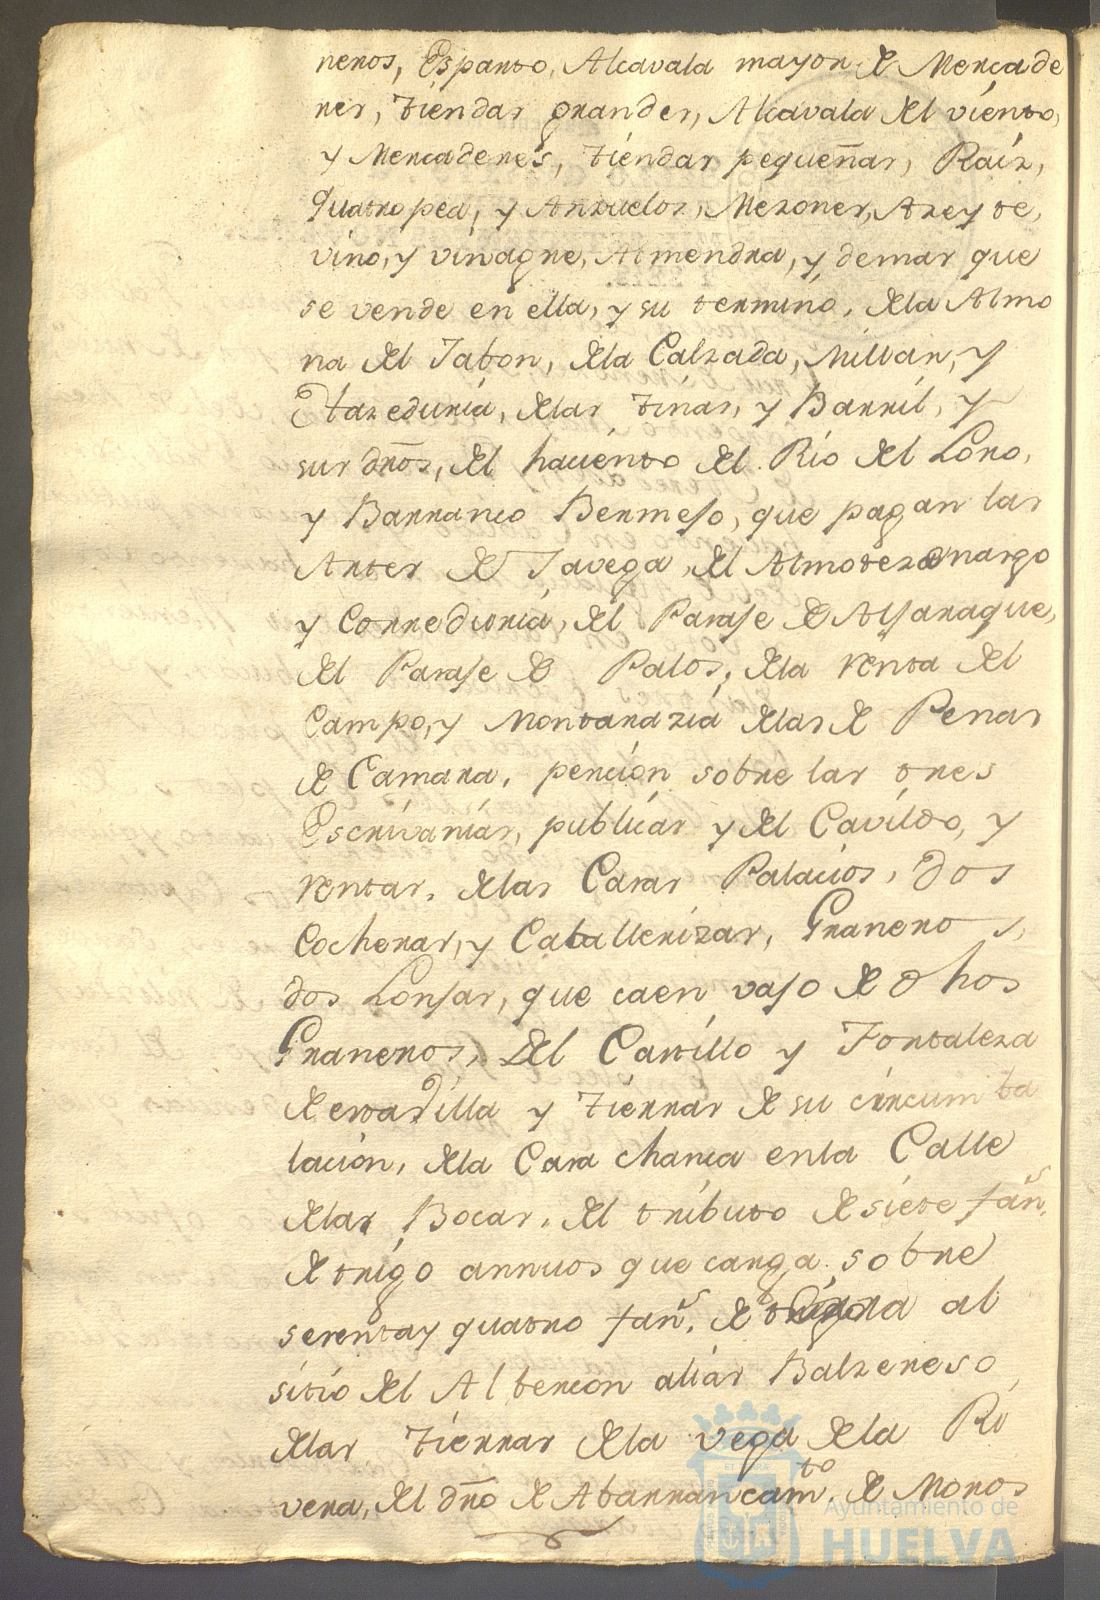 neros, Esparto, Alcavala mayor de Mercade
res, tiendas grandes, Alcavala del viento,
y Mercaderes, tiendas pequeñas, Raiz,
Quatropea, y Anzuelos, Mezones, Azeyte,
vino, y vinagre, Almendra, y demas que
se vende en ella, y su termino, dela Almo
na del Jabon, dela Calzada, Millar, y
Hazeduria, delas tinas, y Barril, y
sus dr̃os, del haciento del Rio del Loro,
y Barranco Bermejo, que pagan las
Artes de Javega, del Almotezenazgo
y Correduria, del Paraje de Aljaraque,
del Paraje de Palos, dela renta del
Campo, y Montarazia delas de Penas
de Camara, pencion sobre las tres
Escrivanias, publicas y del Cavildo, y
rentas, delas Casas Palacios, dos
Cocheras, y Caballerizas, Graneros,
dos Lonjas, que caen vajo de dhos
Graneros, del Castillo y Fortaleza
de estadilla y tierras de su circumba
lacion, dela Casa chanca enla Calle
delas Bocas, del tributo de siete fañs.
de trigo annuos que carga sobre
sesenta y quatro fañs. de al
sitio del Albercon alias Balzereso
delas tierras dela vega dela Ri
vera, del dr̃o de Abarrancamto. de Moros
Ayuntamiento de
HUELVA